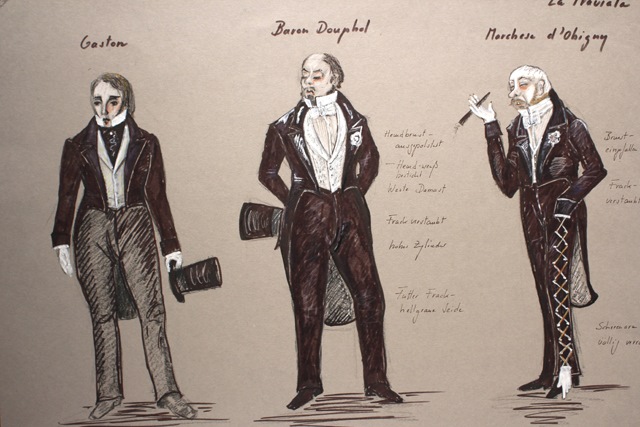 La Traviata
Gaston
Baron Douphol
Marchese d'Obigny
Hemdbrust-
ausgepolstert
– Hemd-weiß
bestickt
Weste Damast
Frack-verstaubt
hoher Zylinder
Futter Frack-
hellgraue Seide
Brust-
eingefallen
Frack-
verstaubt
völlig